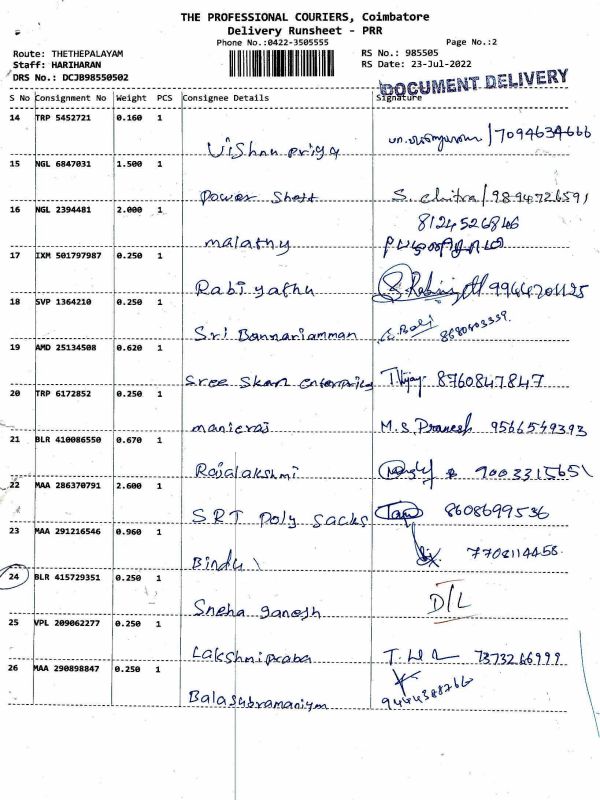 THE PROFESSIONAL COURIERS, Coimbatore
Delivery Runsheet - PRR
Phone No.:0422-3505555 Page No.:2
Route: THETHEPALAYAM RS No.: 985505
Staff: HARIHARAN RS Date: 23-Jul-2022
DRS No.: DCJB98550502
DOCUMENT DELIVERY
S No Consignment No Weight PCS Consignee Details Signature
14 TRP 5452721 0.160 1
Vishnu priya 7094634666
15 NGL 6847031 1.500 1
Power Shaft S. Chitra / 9894726591
16 NGL 2394481 2.000 1
8124526846
malathy
17 IXM 501797987 0.250 1
Rabiyathu 9944201125
18 SVP 1364210 0.250 1
Sri Bannariamman 8680403339
19 AMD 25134508 0.620 1
Sree Skan enterprises T.Vijay 8760847847
20 TRP 6172852 0.250 1
manieraj M.S. Pranesh 9566549393
21 BLR 410086550 0.670 1
Rajalakshmi 9003315651
22 MAA 286370791 2.600 1
S.R.T Poly Sacks 8608699536
23 MAA 291216546 0.960 1
7702114458
Bindu
24 BLR 415729351 0.250 1
Sneha ganesh D/L
25 VPL 209062277 0.250 1
Lakshmipraba 7373266999
26 MAA 290898847 0.250 1
Balasubramaniym 9444388766